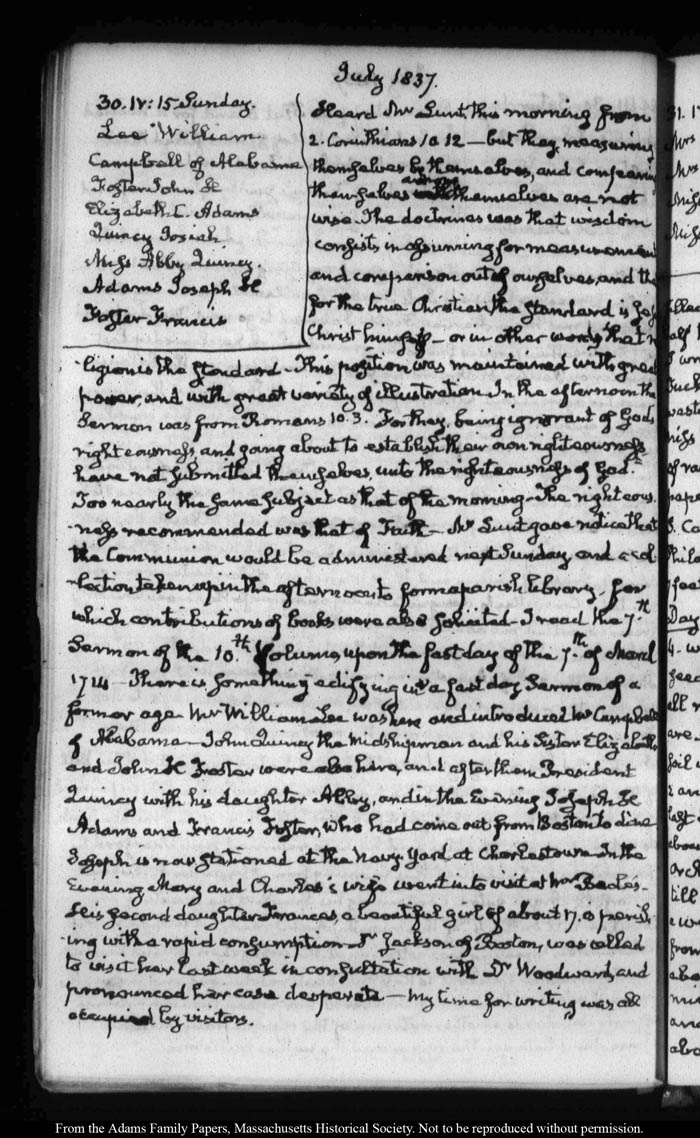 July 1837.
30. IV: 15. Sunday.
Lee William
Campbell of Alabama
Foster John H
Elizabeth C. Adams
Quincy Josiah
Miss Abby Quincy.
Adams Joseph H
Foster Francis
Heard Mr Lunt, this morning from
2. Corinthians 10 12 — but they measuring
themselves by themselves, and comparing
themselves among themselves are not
wise. The doctrine was that wisdom
consists in assuming for measurement
and comparison out of ourselves, and th
for the true Christian the standard is Jes
Christ himself — or in other words that r
ligion is the standard — This position was maintained with great
power, and with great variety of illustration. In the afternoon the
Sermon was from Romans 10. 3. For they, being ignorant of Gods
righteousness, and going about to establish their own righteousness
have not submitted themselves, unto the righteousness of God."
Too nearly the same subject as that of the morning — The righteous
ness recommended was that of Faith — Mr Lunt gave notice that
the Communion would be administered next Sunday and a col
lection taken up in the afternoon to form a parish library — for
which contributions of books were also solicited — I read the 7.th
Sermon of the 10.th Volume, upon the fast day of the 7.th of March
1714 — There is something edifying in a fast day Sermon of a
former age. Mr William Lee was here and introduced Mr Campbell
of Alabama — John Quincy the Midshipman and his Sister Elizabeth
and John H Foster were also here, and after them President
Quincy with his daughter Abby, and in the Evening Joseph H
Adams and Francis Foster, who had come out from Boston to dine
Joseph is now stationed at the Navy-Yard at Charlestown — In the
Evening Mary and Charles's wife went into visit at Mr Beale's —
His second daughter Frances, a beautiful girl of about 17. is perish
ing with a rapid consumption — Dr Jackson of Boston, was called
to visit her last week in consultation with Dr Woodward, and
pronounced her case desperate — My time for writing was all
occupied by visitors.
From the Adams Family Papers, Massachusetts Historical Society. Not to be reproduced without permission.